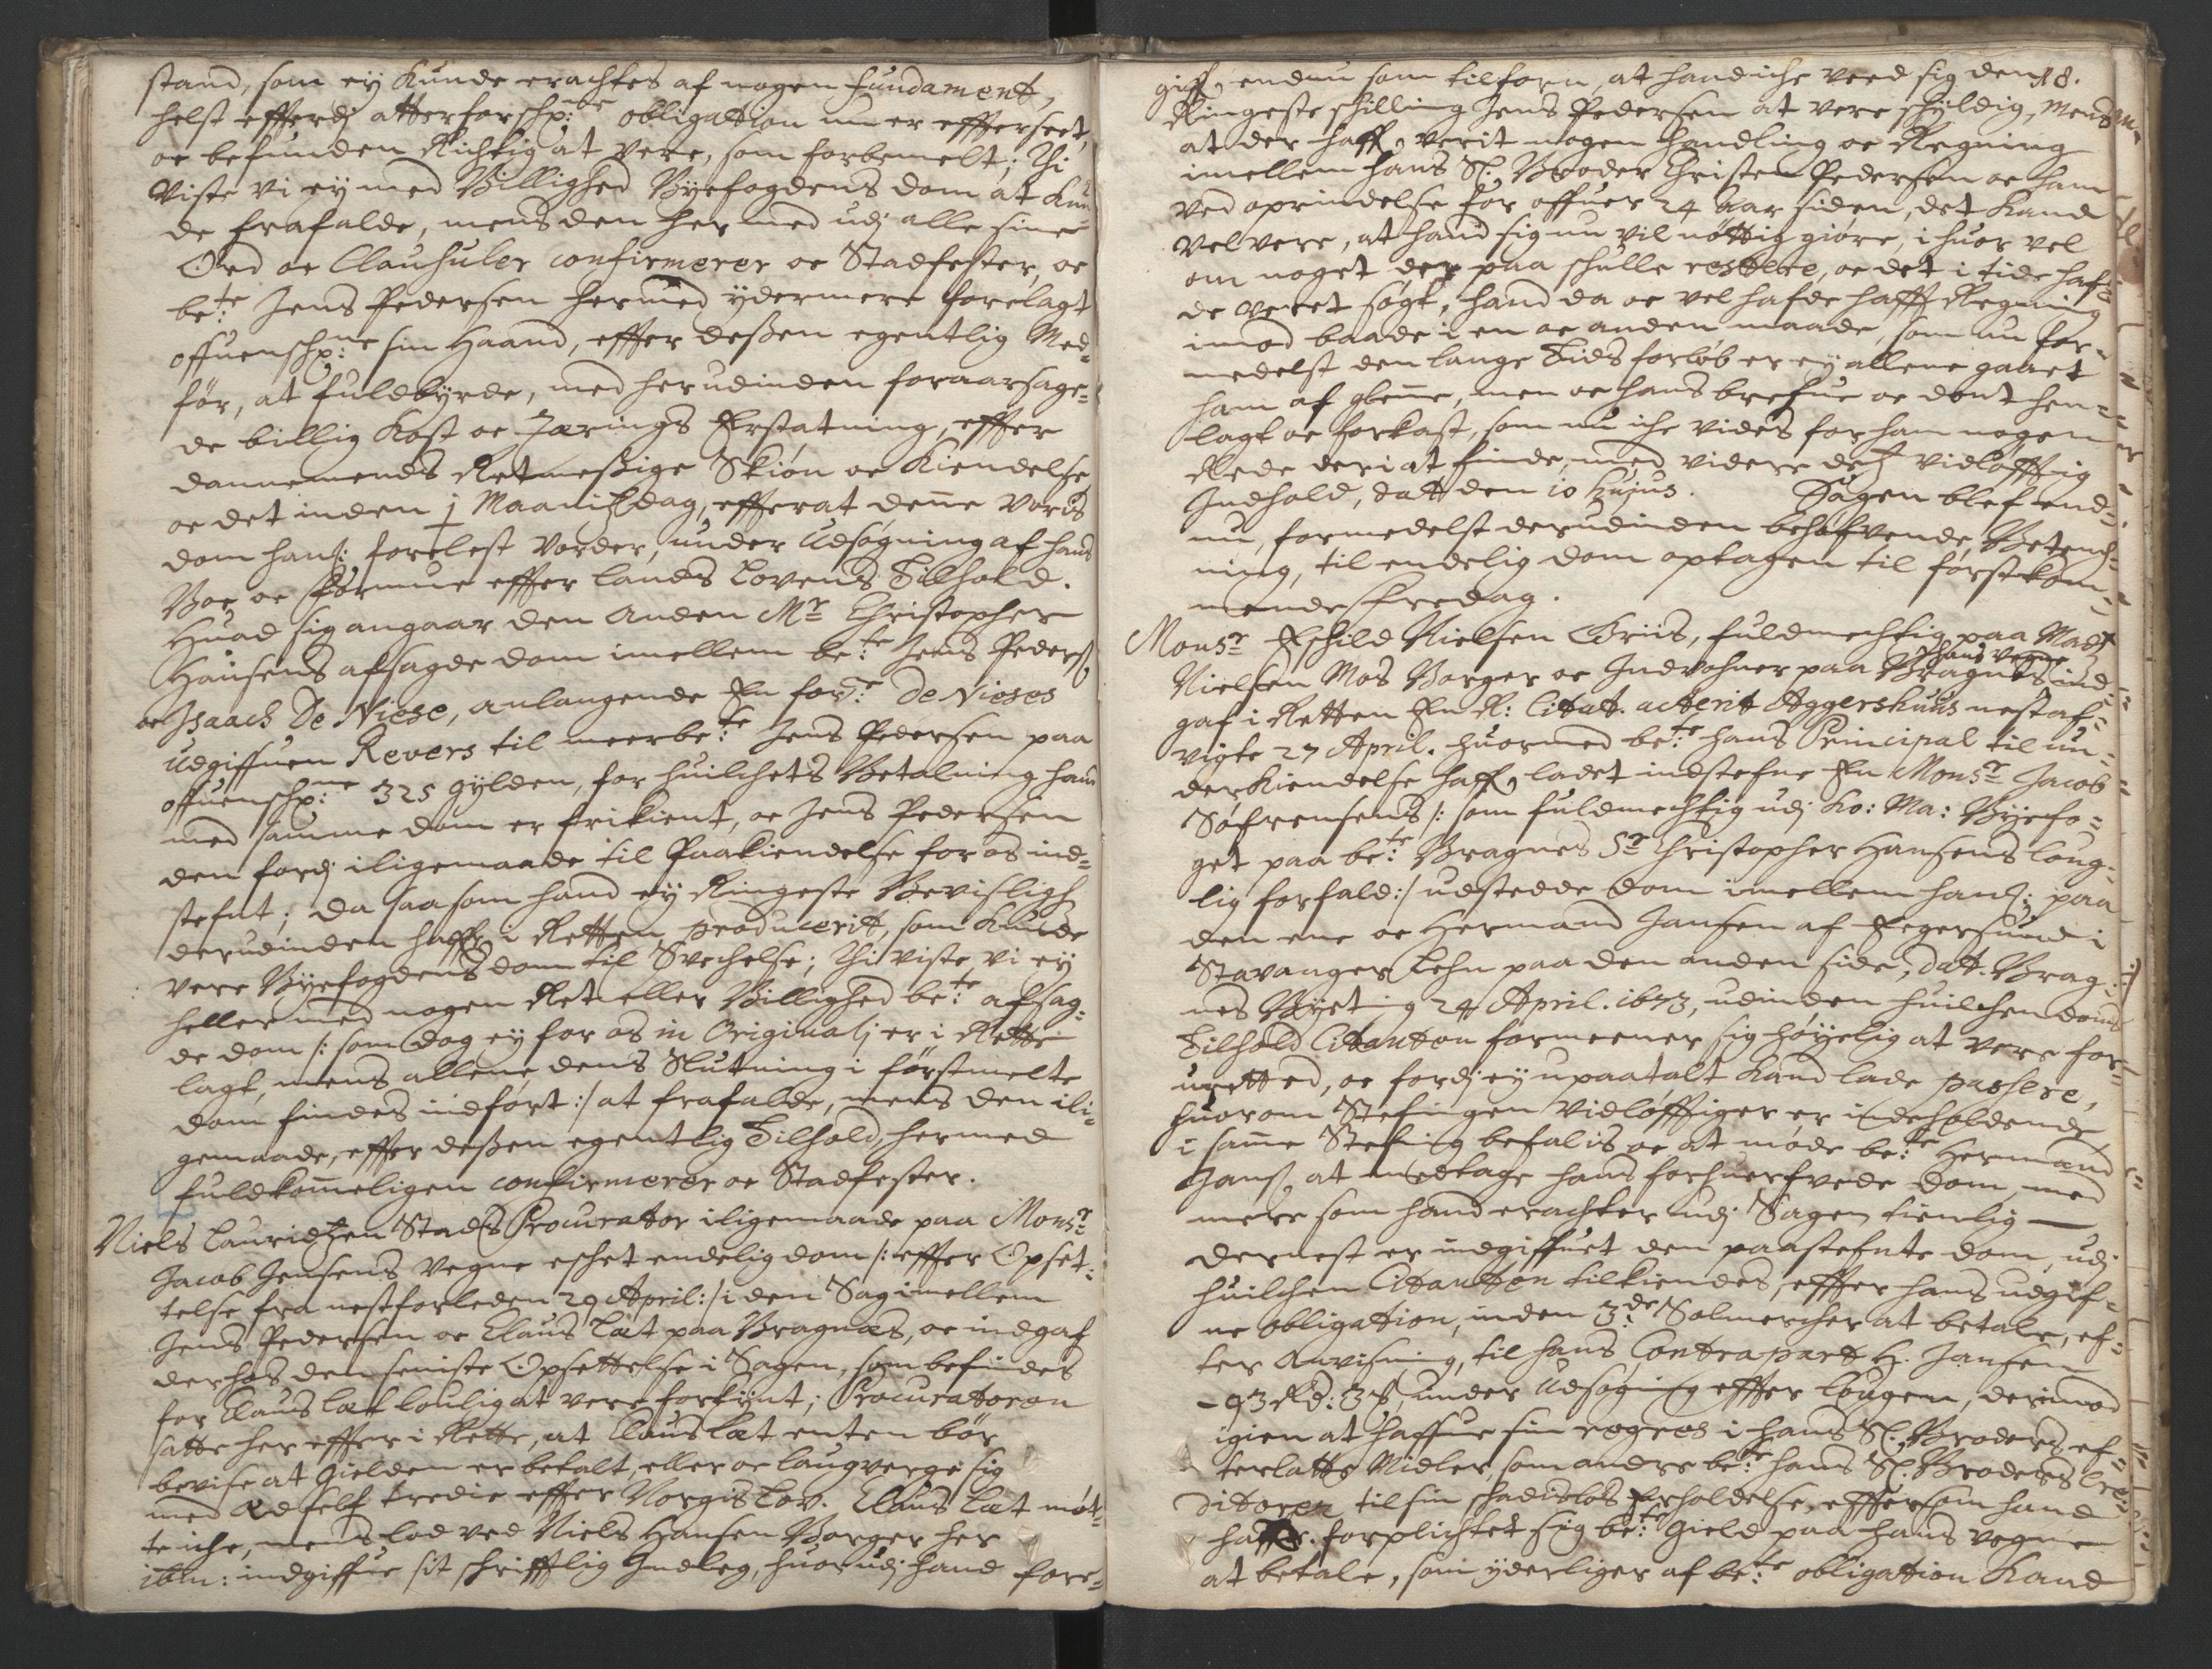 stand, som ej kunde erachtes af nogen fundament,
helst effterdj atterforschp:ne obligation nu er effterseet,
oc befunden Richtig at vere, som forbemelt; Thi
viste vi ey med Billighed Byefogdens dom at kun-
de frafalde, mens den hermed udj alle sine
Ord oc Clausuler confirmerer oc Stadfester, oc
be:te Jens Pedersen hermed ydermere forelagt
offuenschp:ne sin Haand, effter deßen egentlig Med-
för, at fuldbyrde, med herudinden foraarsage-
de billig Kost oc Tærings Erstatning, effter
dannemends Retmeßige Skiøn oc Kiendelse,
oc det inden j Maanitzdag, effterat deñe voris
dom hans: forelest vorder, under Udsøgning af hans
Boe oc Formue effter lands Lovens Tilhold.
Huad sig angaar den anden Mr Christopher
Hansens afsagde dom imellem be:te Jens Peders:
oc Isaach De Niese, anlangende En for:ne De Nieses
udgiffuen Revers til meerbe:te Jens Pedersen paa
offuenschp:ne 325 gylden, for huilchets Betalning hand
med samme dom er frikient, oc Jens Pedersen
den fordj iligemaade til Paakiendelse for os ind-
stefnt; da saasom hand ey Ringeste Bevisligh:
derudinden haffr i Retten producerit, som kunde
vere Byefogdens dom til Svechelse; Thi viste vi ey
heller med nogen Ret eller Billighed be:te afsag-
de dom /: som dog ey for os in Originalj er i Rette
lagt, mens allene dens Slutning i förstmelte
dom findes indført :/ at frafalde, mens den ili-
gemaade, effter deßen egentlig Tilhold, hermed
fuldkom̃eligen confirmerer oc Stadfester.
Niels Lauridtzen Stads Procurator iligemaade paa Monsr
Jacob Jensens vegne eschet endelig dom /: effter Opset-
telse fra nestforleden 29 April :/ i den Sag imellem
Jens Pedersen oc Claus Lat paa Bragnæs, oc indgaf
derhos den seniste Opsettelse i Sagen, som befindes
for Claus Lat loulig at vere forkynt; Procuratoren
satte her effter i Rette, at Claus Lat enten bör
bevise at Gielden er betalt, eller oc laugverge sig
med Æd self tredie effter Norgis Lov. Claus Lat møt-
te iche, mens lod ved Niels Hansen Borger her
ibm: indgiffue sit schrifftlig Indleg, huorudj hand fore-
18.
giff: endnu som tilforn, at hand iche veed sig den
Ringeste schilling Jens Pedersen at vere schyldig, mens
at der haff: verit nogen handling oc Regning
imellem hans Sl. Broder Christen Pedersen oc ham
ved oprindelse for offuer 24 Aar siden, det kand
vel vere, at hand sig nu vil nøttig giøre, i huor vel
om noget der paa schulle restere, oc det i tide haf-
de veret søgt, hand da oc vel hafde hafft Regning
imod baade i en oc anden maade, som nu for-
medelst den lange Tids forløb er ey allene gaaet
ham af gleme, men oc hans brefue oc dont hen-
lagt oc forkast, som nu iche vides for ham nogen
Rede deri at finde, med videre des vidløfftig
Indhold, datt den 10 hujus. Sagen blef end-
nu, formedelst derudinden behøfvende Betench-
ning, til endelig dom optagen til førstkom-
mende Fredag.
Monsr Eschild Nielsen Criis, fuldmechtig paa Madz
Nielsen Mos Borger oc Indvohner paa Bragnes
hans vegne ind-
gaf i Retten En R: Citat. acterit Aggershuus nestaf-
vigte 27 April. huormed be:te hans Principal til un-
derkiendelse haff: ladet indstefne En Monsr Jacob
Söfrensens /: som fuldmechtig udj Ko: Ma: Byefo-
get paa be:te Bragnes Sr Christopher Hansens loug-
lig forfald :/ udstedde dom imellem hans: paa
den ene oc Hermand Jansen af Eegersund i
Stavanger Lehn paa den anden side, dat. Brag-
nes Byeting 24 April. 1673, udinden huilchen doms
Tilhold Citanten formeener sig høyelig at vere for-
uretted, oc fordj ey upaatalt kand lade passere,
huorom Stefningen vidløfftiger er indeholdende,
i sam̃e Stefning befalis oc at møde be:te Hermand
Jans: at medtage hans forhuerfvede dom, med
mere som hand erachter udj Sagen tienlig —
dernest er indgiffuet den paastefnte dom, udj
huilchen Citanten tilkiendes, effter hans udgif-
ne obligation, inden 3de Solmercher at betale, ef-
ter anvisning, til hans Contrapart H. Jansen
- 93 Rd: 3 ß, under Udsøgning effter Lougen, derimod
igien at haffue sin regres i hans Sl. Broders ef-
terlatte Midler, som andre be:te hans Sl. Broders Cre-
ditorer til sin schadisløs Erholdelse, efftersom hand
haffr. forplichtet sig be:te Gield paa hans vegne
at betale, som yderliger af be:te obligation kand